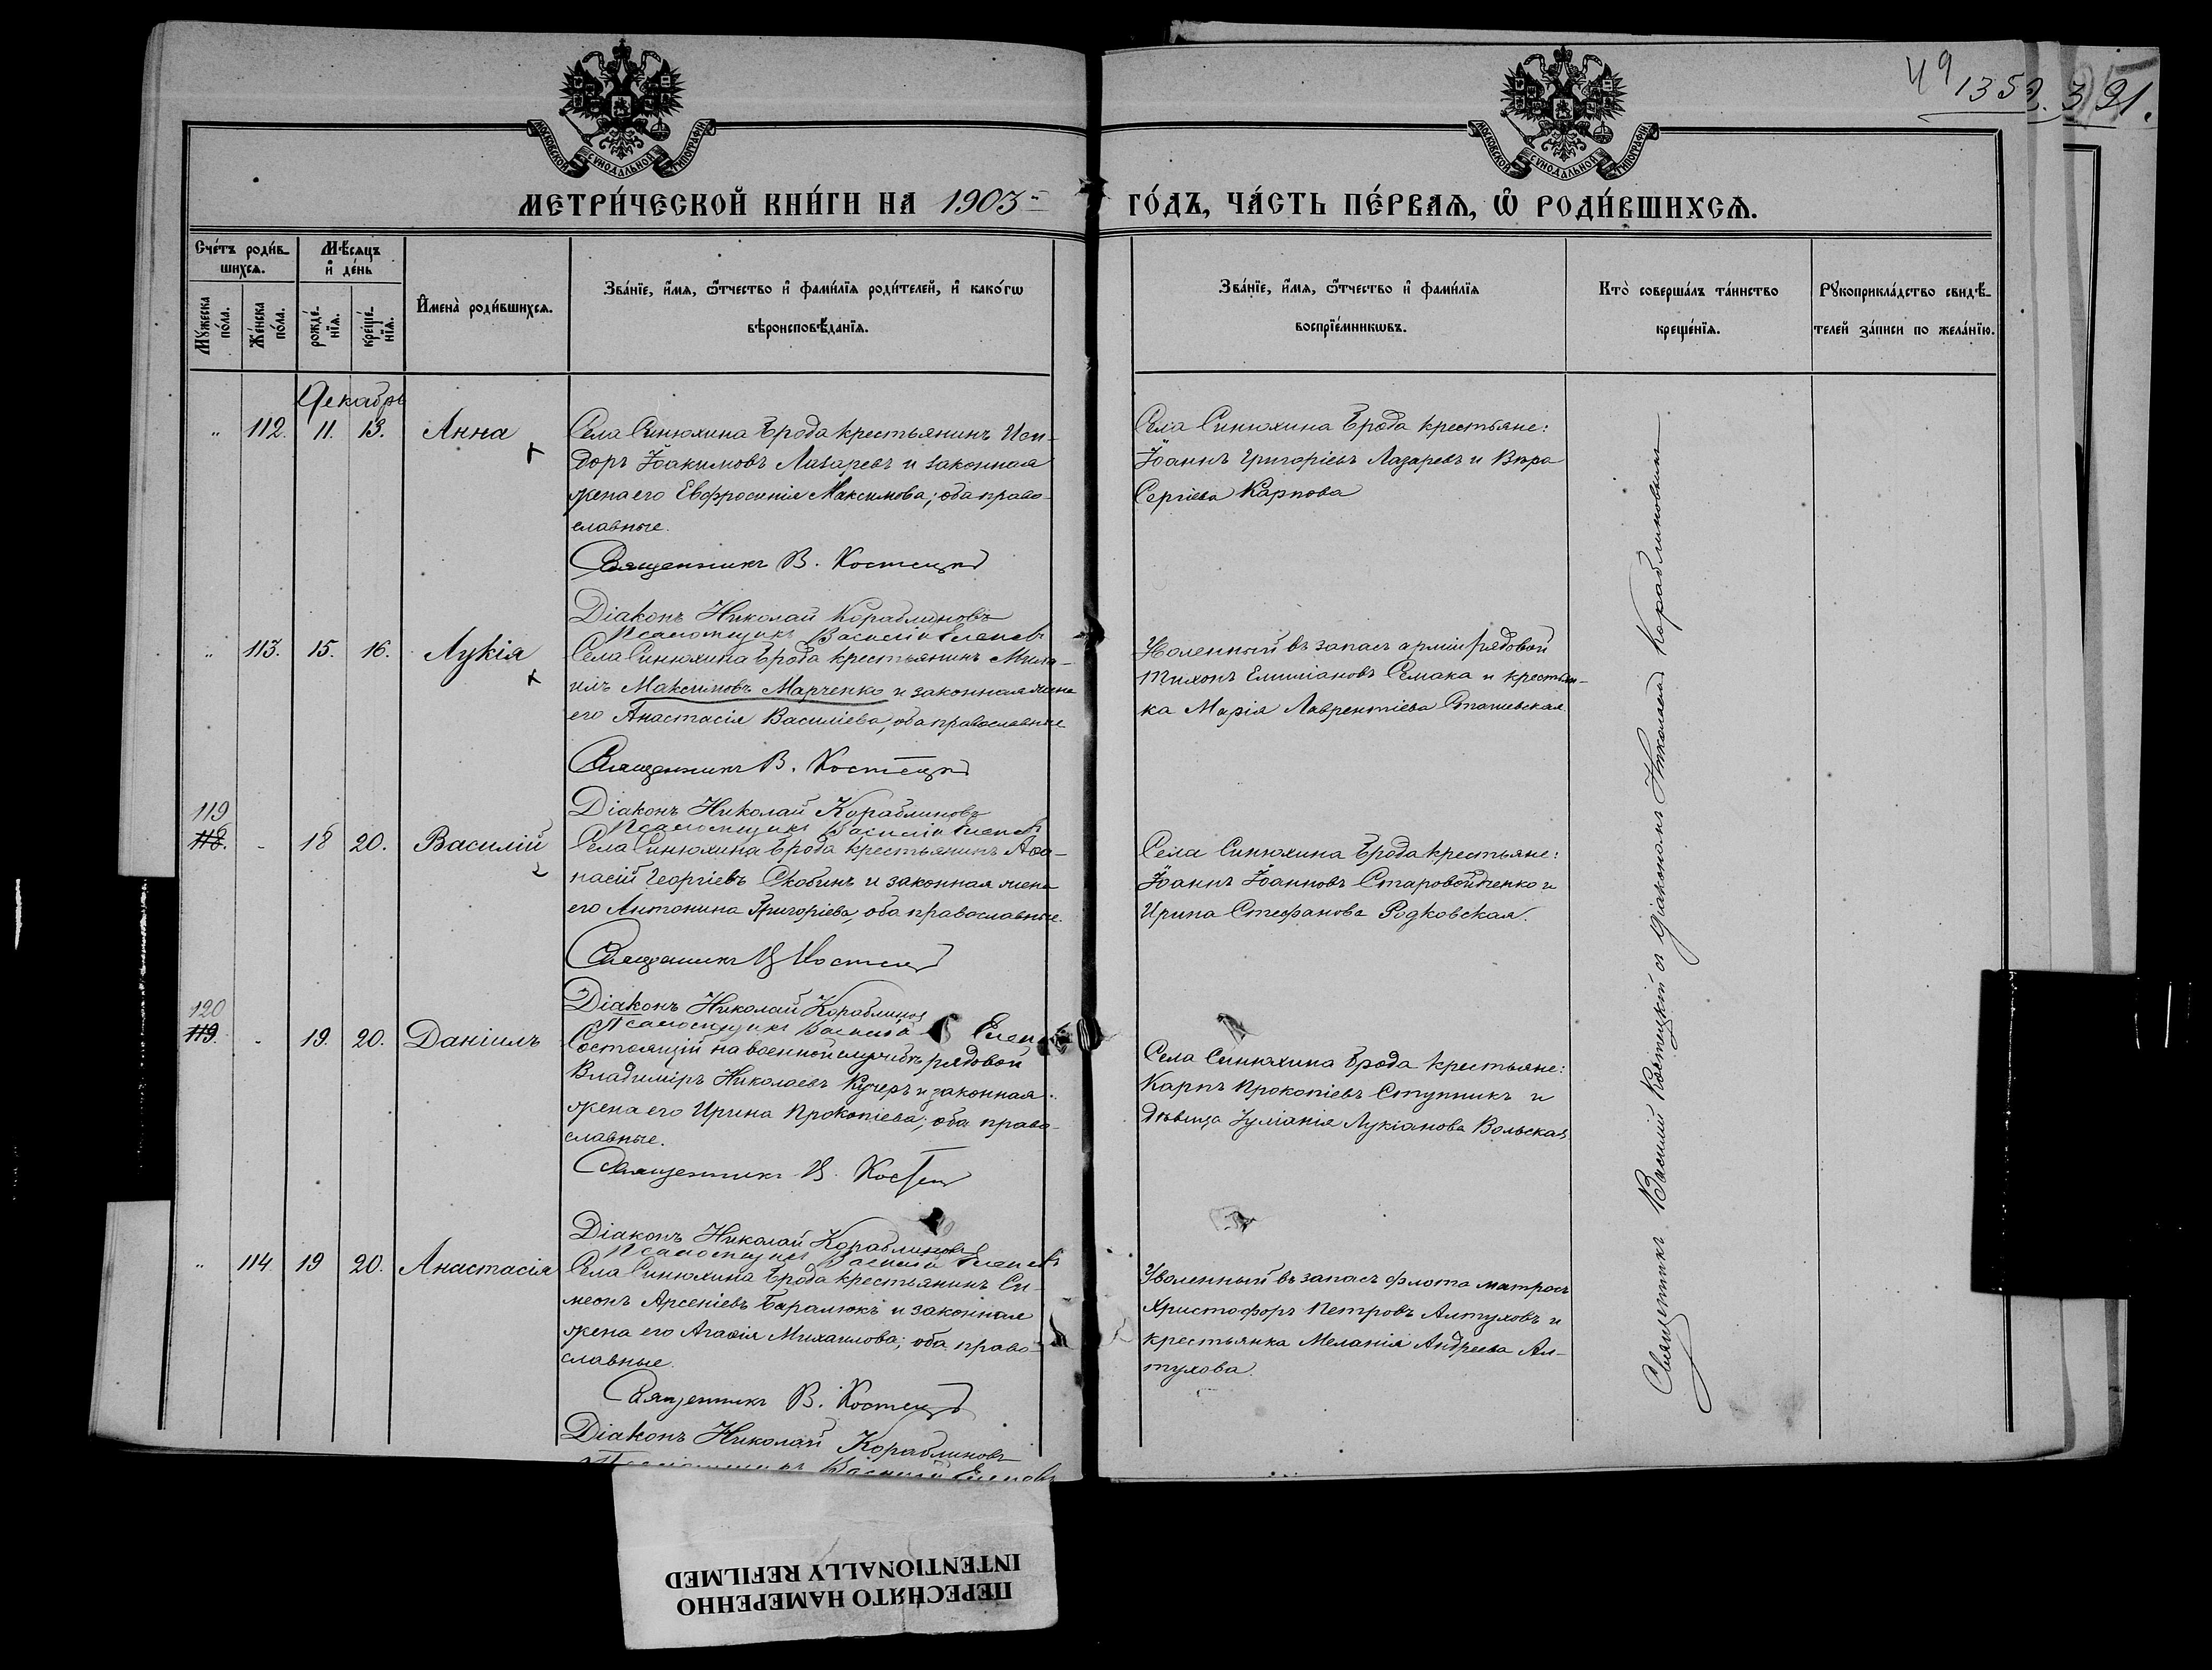 49 1352. 3 91.
МОСКОВСКОЙ СѴНОДАЛЬНОЙ ТИПОГРАФІИ
МОСКОВСКОЙ СѴНОДАЛЬНОЙ ТИПОГРАФІИ
МЕТРИ́ЧЕСКОЙ КНИ́ГИ НА 1903 ГО́ДЪ, ЧА́СТЬ ПЕ́РВАѦ, Ѡ҆ РОДИ́ВШИХСѦ.
Сче́тъ роди́в-
шихсѧ.
Мѣ́сѧцъ
и҆ де́нь
Мꙋ́жеска
по́ла.
Же́нска
по́ла.
рожде́-
нїѧ.
креще́-
нїѧ.
И҆мена̀ роди́вшихсѧ.
Зва́нїе, и҆́мѧ, ѻ҆́тчество и҆ фами́лїѧ роди́телей, и҆ како́гѡ
вѣроисповѣ́данїѧ.
Зва́нїе, и҆́мѧ, ѻ҆́тчество и҆ фами́лїѧ
воспрїе́мникѡвъ.
Кто̀ соверша́лъ та́инство
креще́нїѧ.
Рꙋкоприкла́дство свидѣ́-
телей за́писи по жела́нїю.
Декабрь
" 112. 11. 13. Анна
Села Синюхина Брода крестьянинъ Иси-
доръ Іоакимовъ Лазаревъ и законная
жена его Евфросинія Максимова; оба право-
славные.
Священникъ В. Костецкій
Діаконъ Николай Кораблиновъ
Псаломщикъ Василій
Села Синюхина Брода крестьяне:
Іоаннъ Григоріевъ Лазаревъ и Вѣра
Сергіева Карпова
" 113. 15. 16. Лукія
Села Синюхина Брода крестьянинъ Миха-
илъ Максимовъ Марченко и законная жена
его Анастасія Василіева, оба православные
Священникъ В. Костецкій
Діаконъ Николай Кораблиновъ
Псаломщикъ Василій
Уволенный въ запасъ арміи рядовой
Тихонъ Емиліановъ Семака и крестьян-
ка Марія Лаврентіева Сташевская
119
118. - 18 20. Василій
Села Синюхина Брода крестьянинъ Аѳа-
насій Георгіевъ Скобинъ и законная жена
его Антонина Григоріева, оба православные.
Священникъ В Костецкій
Діаконъ Николай Кораблиновъ
Псаломщикъ Василій
Села Синюхина Брода крестьяне:
Іоаннъ Іоанновъ Старовойтенко и
Ирина Стефанова Родковская.
120
119. - 19. 20. Даніилъ
Состоящій на военной службѣ рядовой
Владиміръ Николаевъ Кучеръ и законная
жена его Ирина Прокопіева; оба право-
славные.
Священникъ В. Костец
Діаконъ Николай Кораблиновъ
Псаломщикъ Василій
Села Синюхина Брода крестьяне:
Карпъ Прокопіевъ Ступникъ и
дѣвица Іуліанія Лукіанова Вольская
" 114 19 20. Анастасія
Села Синюхина Брода крестьянинъ Си-
меонъ Арсеніевъ Баралюкъ и законная
жена его Агаѳія Михаилова; оба право-
славные.
Священникъ В. Костецкій
Діаконъ Николай Кораблиновъ
Псаломщикъ Василій
Уволенный въ запасъ флота матросъ
Христофоръ Петровъ Алтуховъ и
крестьянка Меланія Андреева Ал-
тухова.
Священникъ Василій Костецкій съ діакономъ Николаемъ Кораблиновымъ
ПЕРЕСНЯТО НАМЕРЕННО
INTENTIONALLY REFILMED